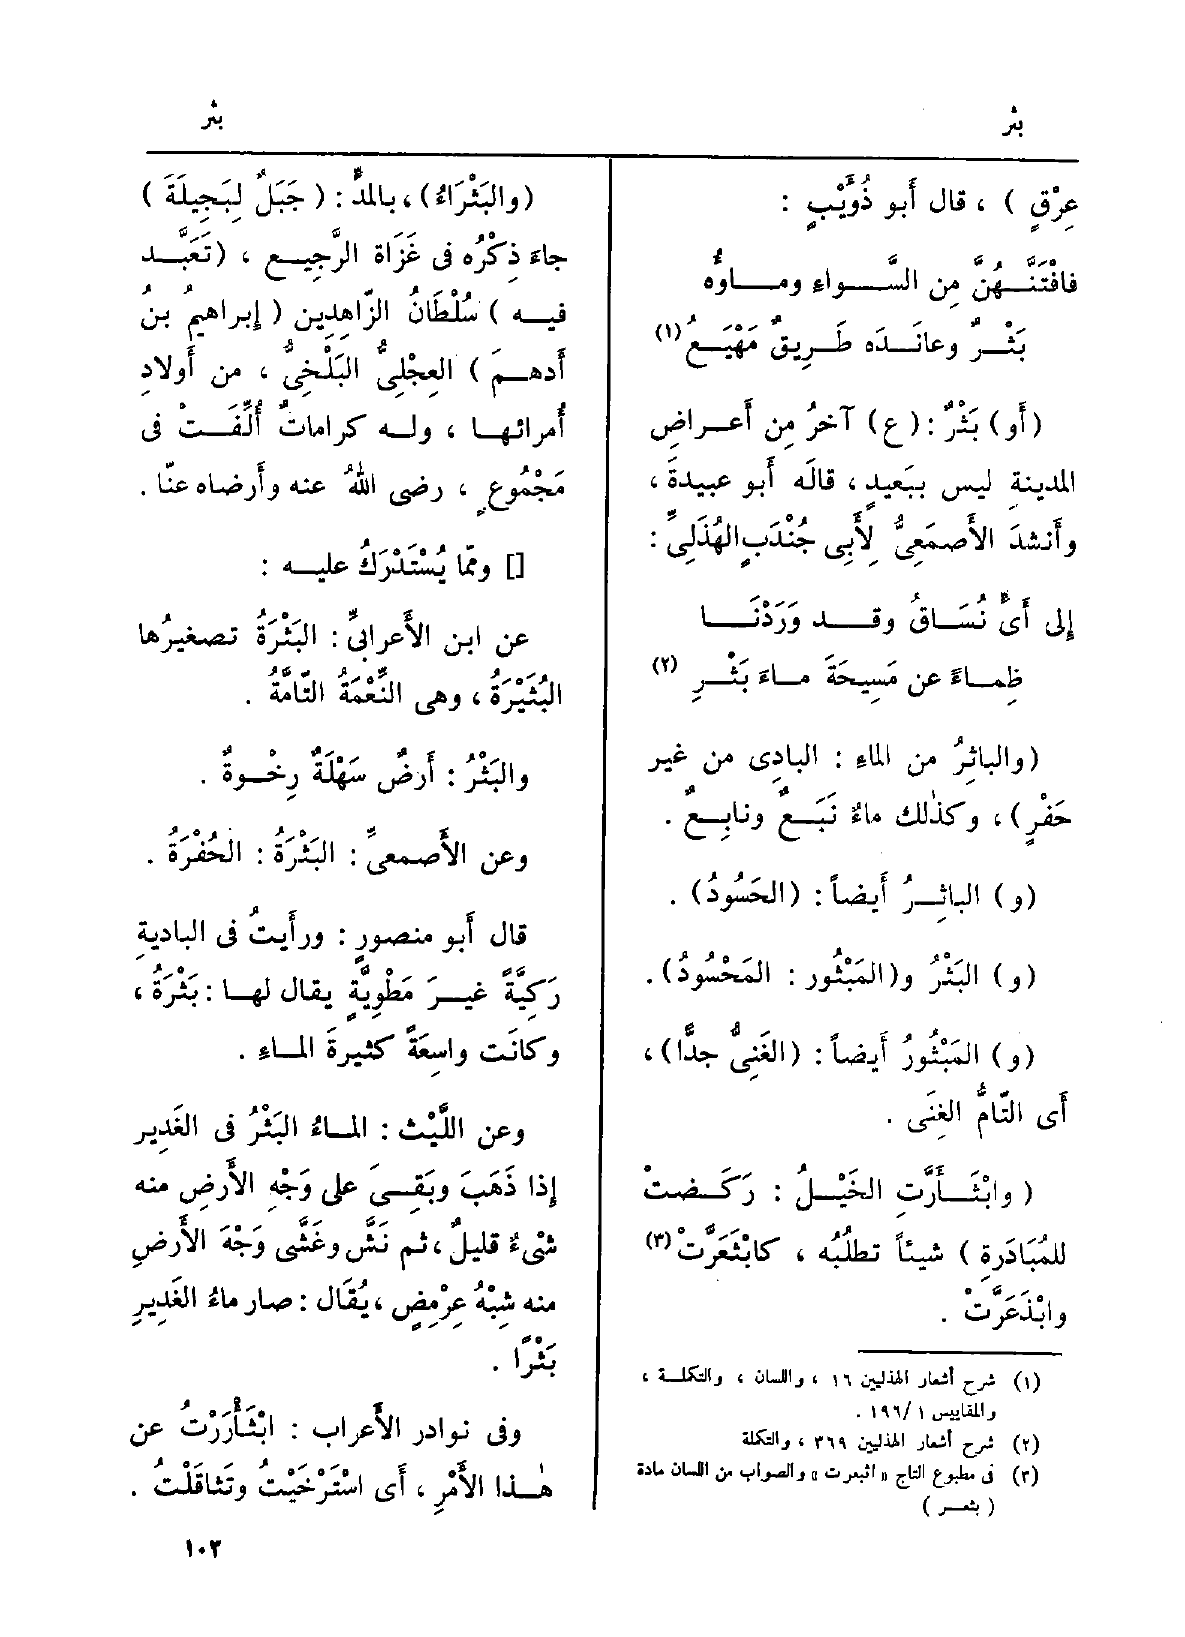 بثر
بثر
عِرْقٍ ) ، قال أَبو ذُؤَيْبٍ :
فافْتَنَّـهُنَّ مِن السَّـواءِ ومـاوُه
بَثْـرٌ وعانَـدَه طَـرِيقٌ مَهْيَـعُ (١)
(أَو) بَثْرٌ : (ع) آخرُ مِن أَعـراضِ
المدينةِ ليس ببَعيدٍ ، قالَه أَبو عبيدةَ ،
وأَنشدَ الأَصمَعِيُّ لِأَبِى جُنْدَبٍ الهُذَلِىِّ :
إلى أَىٍّ نُسَـاقُ وقـد وَرَدْنَـا
ظِمـاءً عن مَسِيحَةَ مـاءَ بَثْـرِ (٢)
(والباثِرُ من الماءِ : البادِى من غير
حَفْرٍ) ، وكذٰلك ماءٌ نَبَـعٌ ونابِـعٌ .
(و) الباثِـرُ أَيضاً : (الحَسُودُ) .
(و) البَثْرُ و(المَبْثُور : المَحْسُودُ) .
(و) المَبْثُورُ أَيضاً : (الغَنِىُّ جدًّا) ،
أَى التّامُّ الغِنَى .
( وابْثَـأَرَّتِ الخَيْـلُ : رَكَـضتْ
للمُبَادَرةِ ) شيئاً تطلُبُه ، كابْثَعَرَّتْ (٣)
وابْذَعَرَّتْ .
(١) شرح أشعار الهذليين ١٦ ، واللسان ، والتكلـة ،
والمقاييس ١ /١٩٦ .
(٢) شرح أشعار الهذليين ٣٦٩ ، والتكلة
(٣) فى مطبوع التاج « اثبعرت » والصواب من اللسان مادة
( بثعـر )
(والبَثْرَاءُ) ، بالمدِّ : ( جَبَلٌ لِبَجِيلَةَ )
جاءَ ذِكْرُه فى غَزَاة الرَّجِيـع ، (تَعَبَّـد
فيـه ) سُلْطَانُ الزّاهِدِين ( إبراهيمُ بنُ
أَدهـمَ ) العِجْلِىُّ البَلْخِىُّ ، من أَولادِ
أُمرائهـا ، ولـه كراماتٌ أُلِّفَـتْ فى
مَجْمُوعٍ ، رضى اللهُ عنه وأَرضاه عنّا .
[] وممّا يُسْتَدْرَكُ عليـه :
عن ابن الأَعرابىِّ : البَثْرَةُ تصغيرُها
البُثَيْرَةُ ، وهى النِّعْمَةُ التّامَّةُ .
والبَثْرُ : أَرضٌ سَهْلَةٌ رِخْـوةٌ .
وعن الأَصمعىِّ : البَثْرَةُ : الحُفْرَةُ .
قال أَبو منصورٍ : ورأَيتُ فى الباديةِ
رَكِيَّةً غيـرَ مَطْوِيَّةٍ يقال لهـا : بَثْرَةُ ،
وكانَت واسِعَةً كثيرةَ المـاءِ .
وعن اللَّيْث : المـاءُ البَثْرُ فى الغَدِير
إذا ذَهَبَ وبَقِـىَ على وَجْهِ الأَرضِ منه
شىْءٌ قليلٌ ، ثم نَشَّ وغَشَّى وَجْهَ الأَرضِ
منه شِبْهُ عِرْمِضٍ ، يُقَال : صار ماءُ الغَدِيرِ
بَثْرًا .
وفى نوادر الأَعراب : ابْثَأْرَرْتُ عن
هٰـذا الأَمْرِ ، أَى اسْتَرْخَيْتُ وتَثاقَلْتُ .
١٠٣